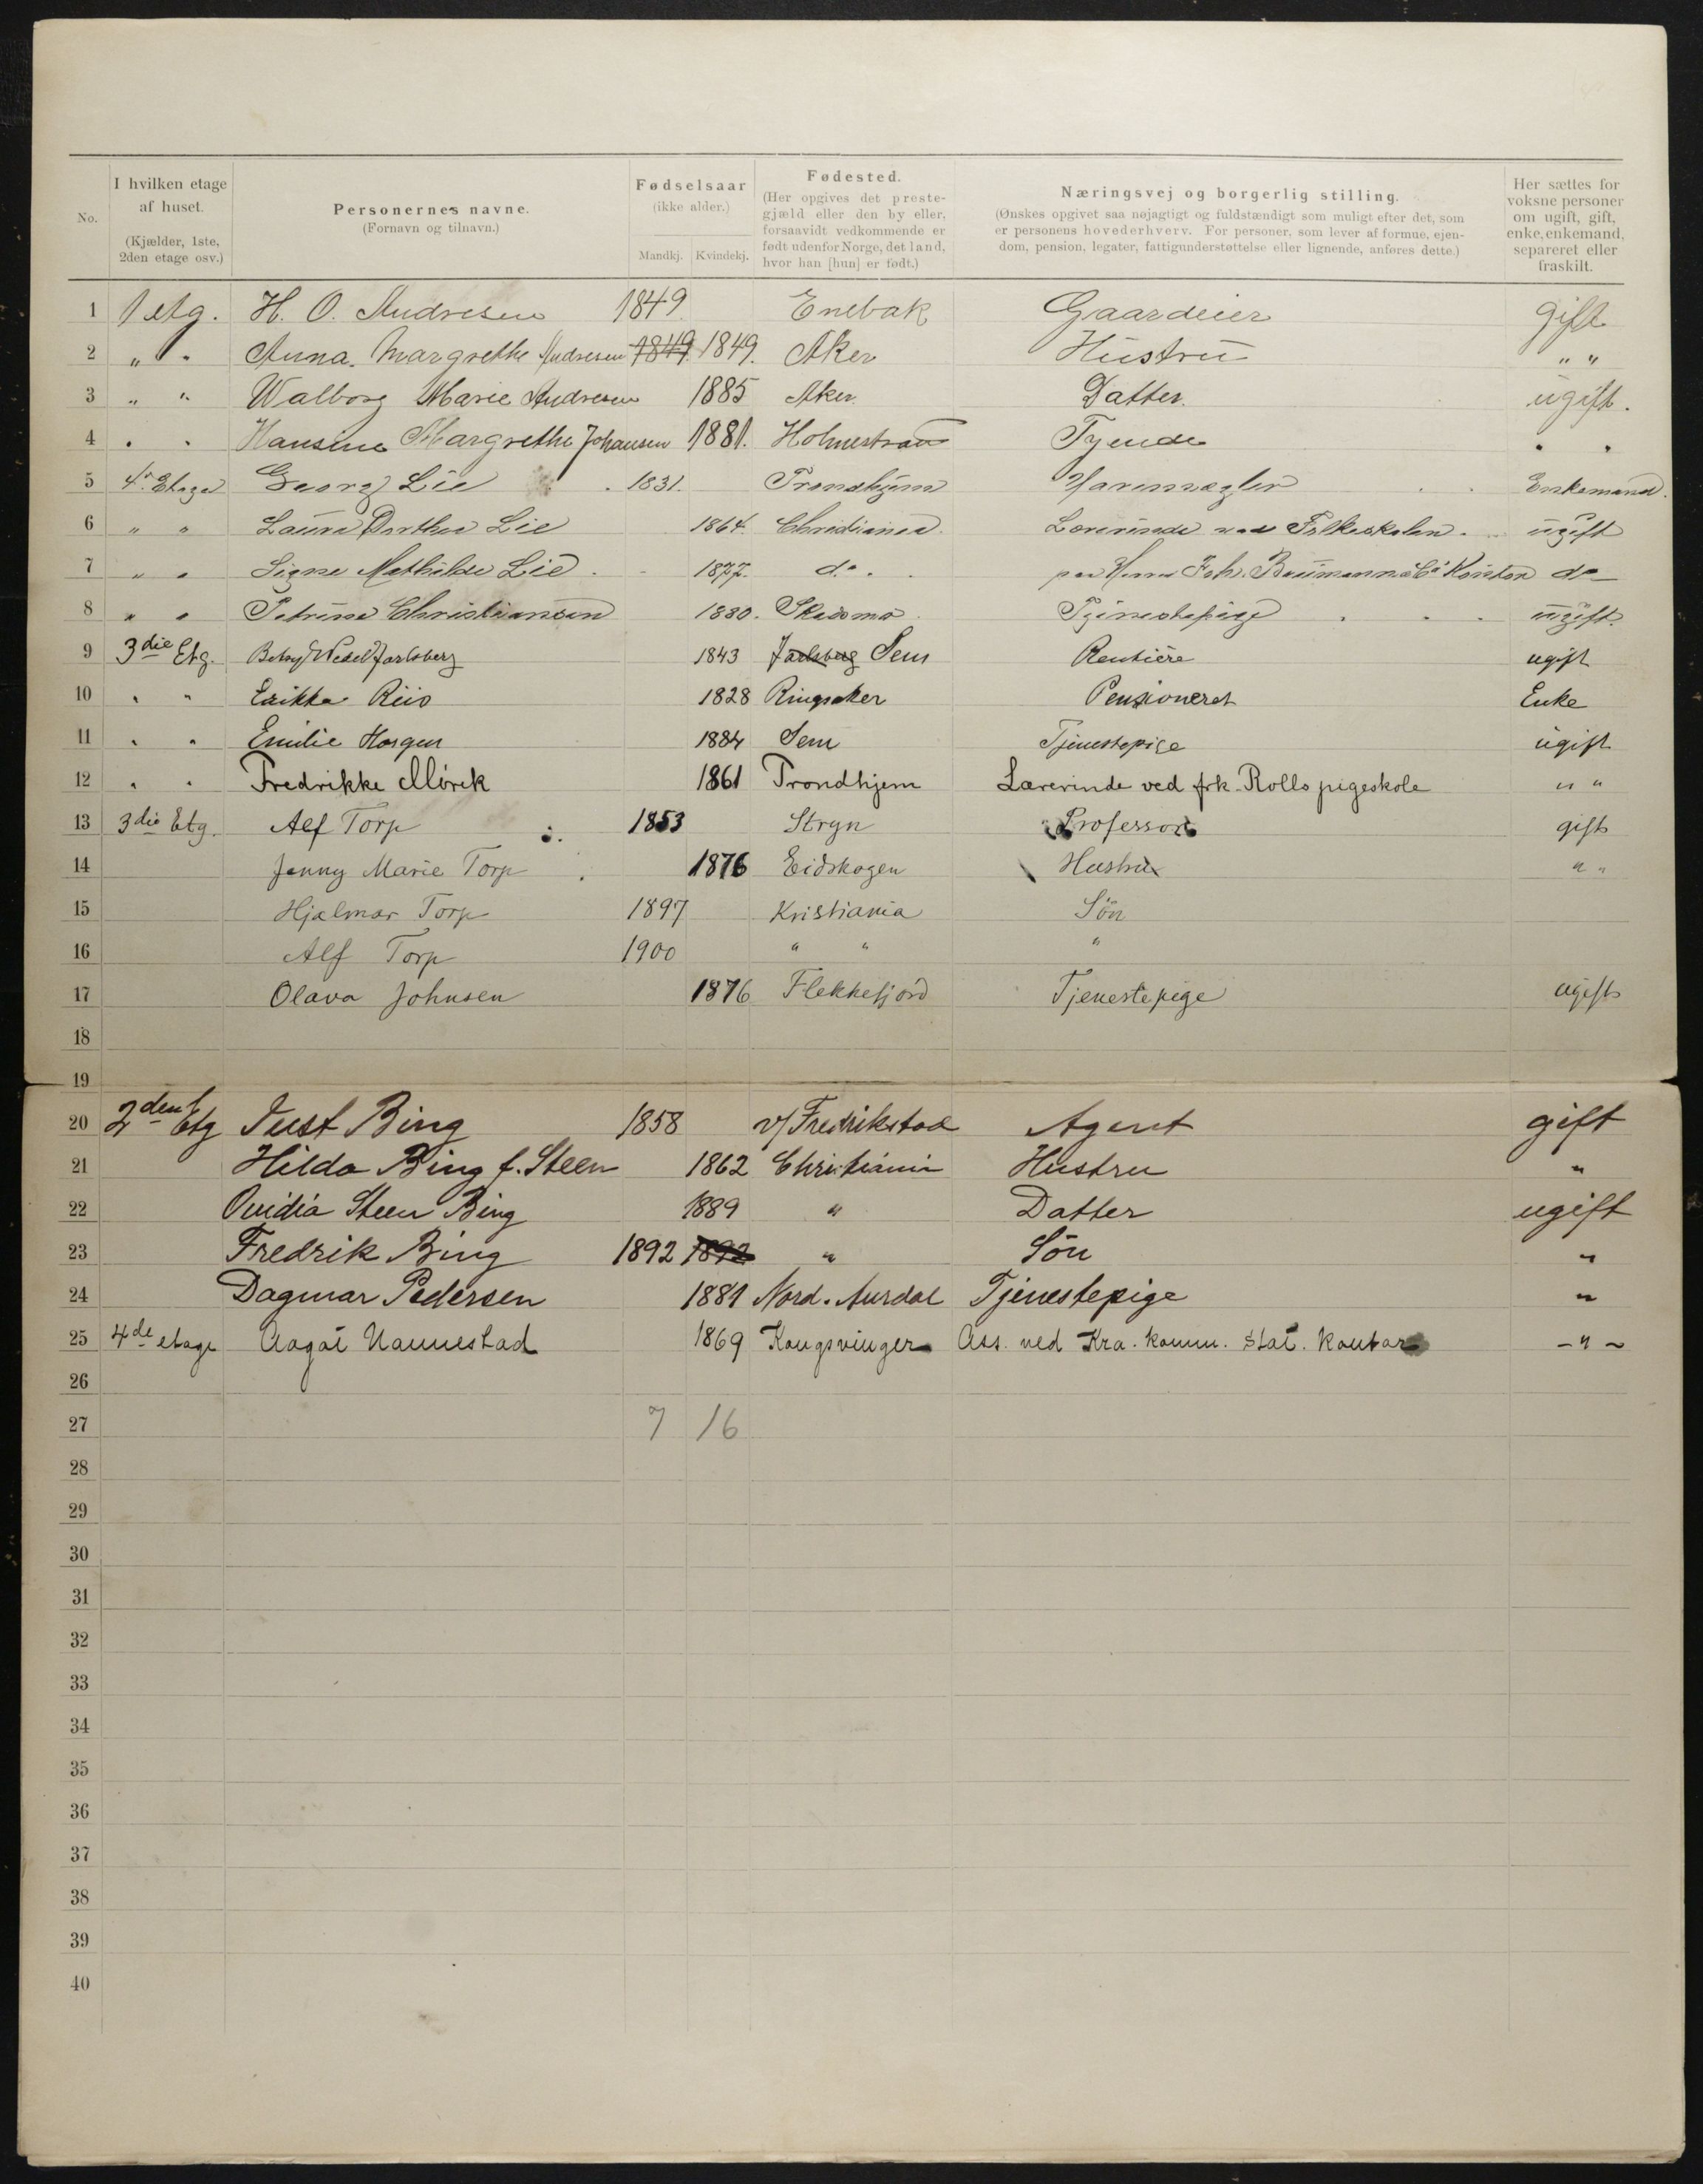 No.
I hvilken etage af huset. (Kjælder, 1ste, 2den etage osv.)
Personernes navne. (Fornavn og tilnavn.)
Fødselsaar (ikke alder.)
Mandkj. Kvindekj.
Fødested. (Her opgives det prestegjæld eller den by eller, forsaavidt vedkommende er født udenfor Norge, det land, hvor han [hun] er født.)
Næringsvej og borgerlig stilling. (Ønskes opgivet saa nøjagtigt og fuldstændigt som muligt efter det, som er personens hovederhverv. For personer, som lever af formue, ejendom, pension, legater, fattigunderstøttelse eller lignende, anføres dette.)
Her sættes for voksne personer om ugift, gift, enke, enkemand, separeret eller fraskilt.
1 1 etg. H. O. Andresen 1849 Enebak Gaardeier gift
2 " " Anna Margrethe Andresen 1849. 1849. Aker Hustru " "
3 " " Walborg Marie Andresen 1885 Aker Datter. ugift.
4 " " Hansine Margrethe Johansen 1881. Holmestrand Tyende " "
5 4. Etage Georg Lie 1831. Trondhjem Varemægler Enkemand.
6 " " Laura Dorthea Lie 1864. Christiania Lærerinde ved Folkeskolen. ugift
7 " " Signe Mathilde Lie 1877. do. paa Herrer Joh. Baumann & Co Kontor do
8 " " Petrine Christiansen 1880. Skedsmo Tjenestepige ugift.
9 3die Etg. Betsy Wedel Jarlsberg 1843 Jarlsberg Sem Rentière ugift
10 " " Erikka Riis 1828 Ringsaker Pensioneret Enke
11 " " Emilie Horgen 1884 Sem Tjenestepige ugift
12 " " Fredrikke Mörck 1861 Trondhjem Lærerinde ved frk. Rolls pigeskole " "
13 3die Etg. Alf Torp 1853 Stryn Professor gift
14 Jenny Marie Torp 1876 Eidskogen Hustru " "
15 Hjalmar Torp 1897 Kristiania Sön
16 Alf Torp 1900 " " "
17 Olava Johnsen 1876 Flekkefjord Tjenestepige ugift
18
19
20 2den Etg Just Bing 1858 v/Fredrikstad Agent gift
21 Hilda Bing f. Steen 1862 Christiania Hustru "
22 Ovidia Steen Bing 1889 " Datter ugift
23 Fredrik Bing 1892 1892 " Sön "
24 Dagmar Pedersen 1881 Nord. Aurdal Tjenestepige "
25 4de etage Aagot Nannestad 1869 Kongsvinger Ass. ved Kra. komm. stat. kontor -"-
26
27 7 16
28
29
30
31
32
33
34
35
36
37
38
39
40